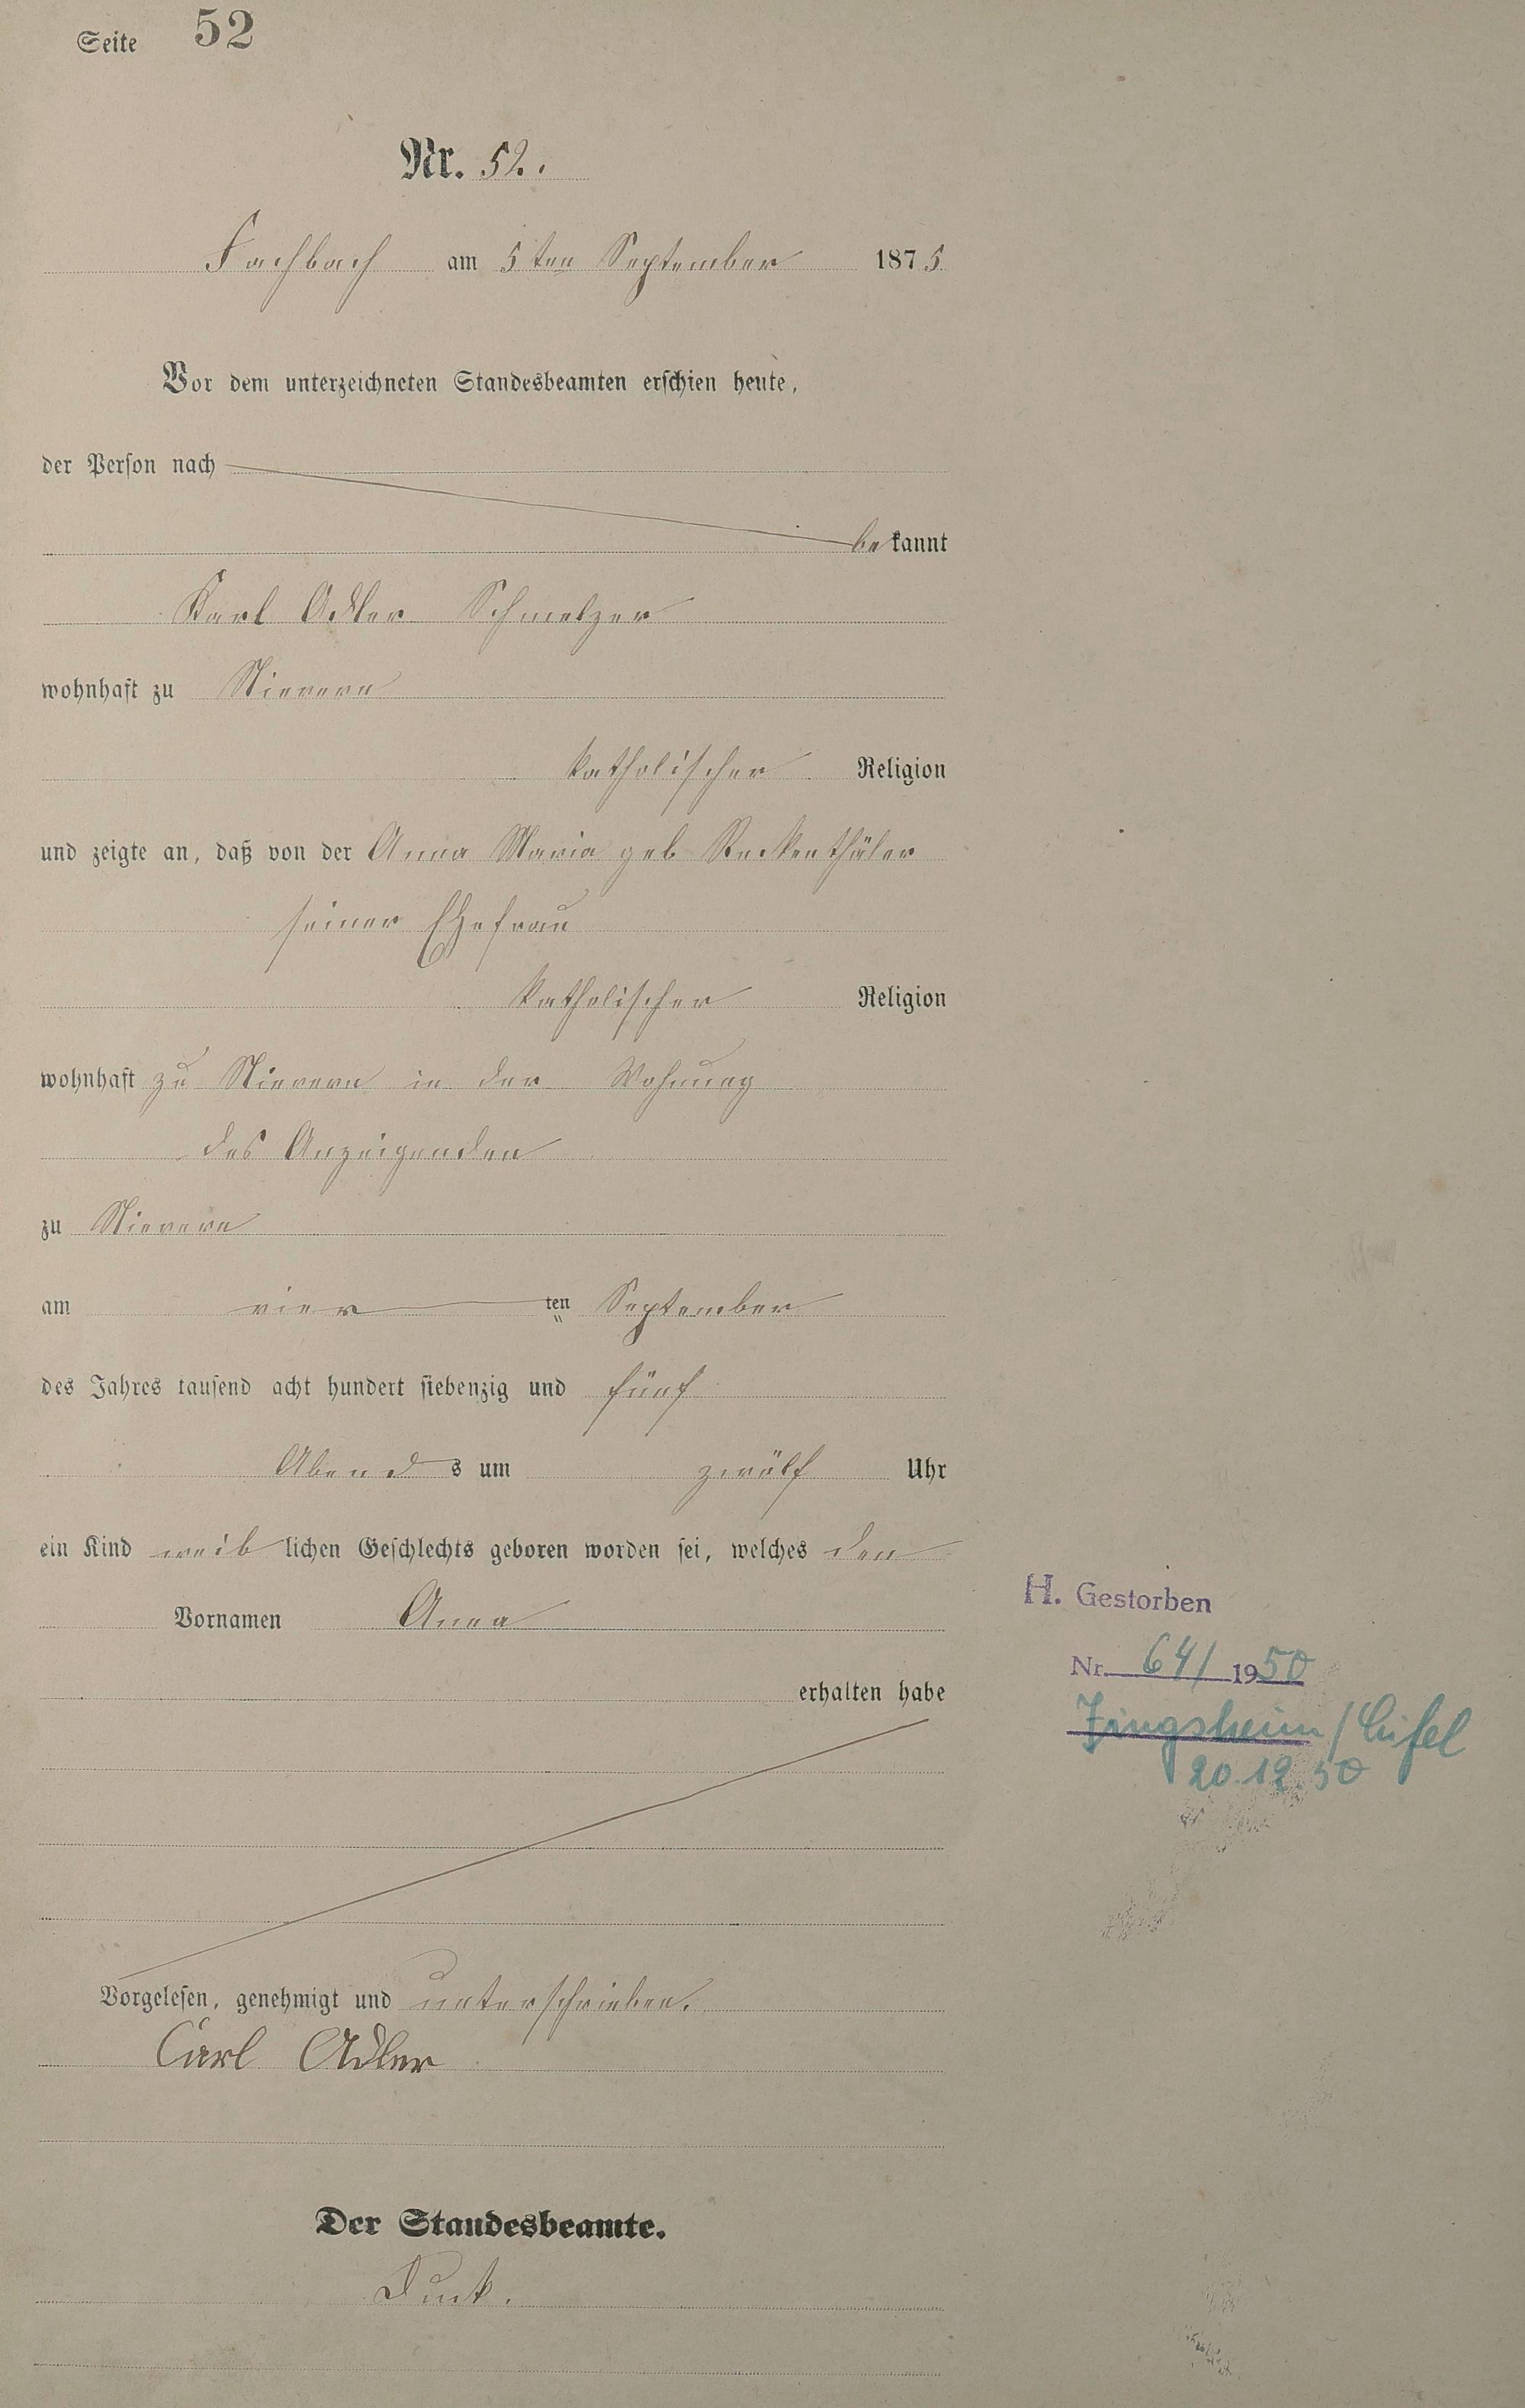 Seite 52
Nr. 52.
Fachbach am 5ten September 1875
Vor dem unterzeichneten Standesbeamten erschien heute,
der Person nach
bekannt
Karl Adler Schmelzer
wohnhaft zu Nievern
katholischer Religion
und zeigte an, daß von der Anna Maria geb
seiner Ehefrau
katholischer Religion
wohnhaft zu Nievern in der Wohnung
des Anzeigenden
zu Nievern
am vier ten September
des Jahres tausend acht hundert siebenzig und fünf
Abends um zwölf Uhr
ein Kind weiblichen Geschlechts geboren worden sei, welches den
Vornamen Anna
erhalten habe
H. Gestorben
Nr. 64/1950
Zingsheim / Eifel
20.12.50
Vorgelesen, genehmigt und unterschrieben.
Carl Adler
Der Standesbeamte.